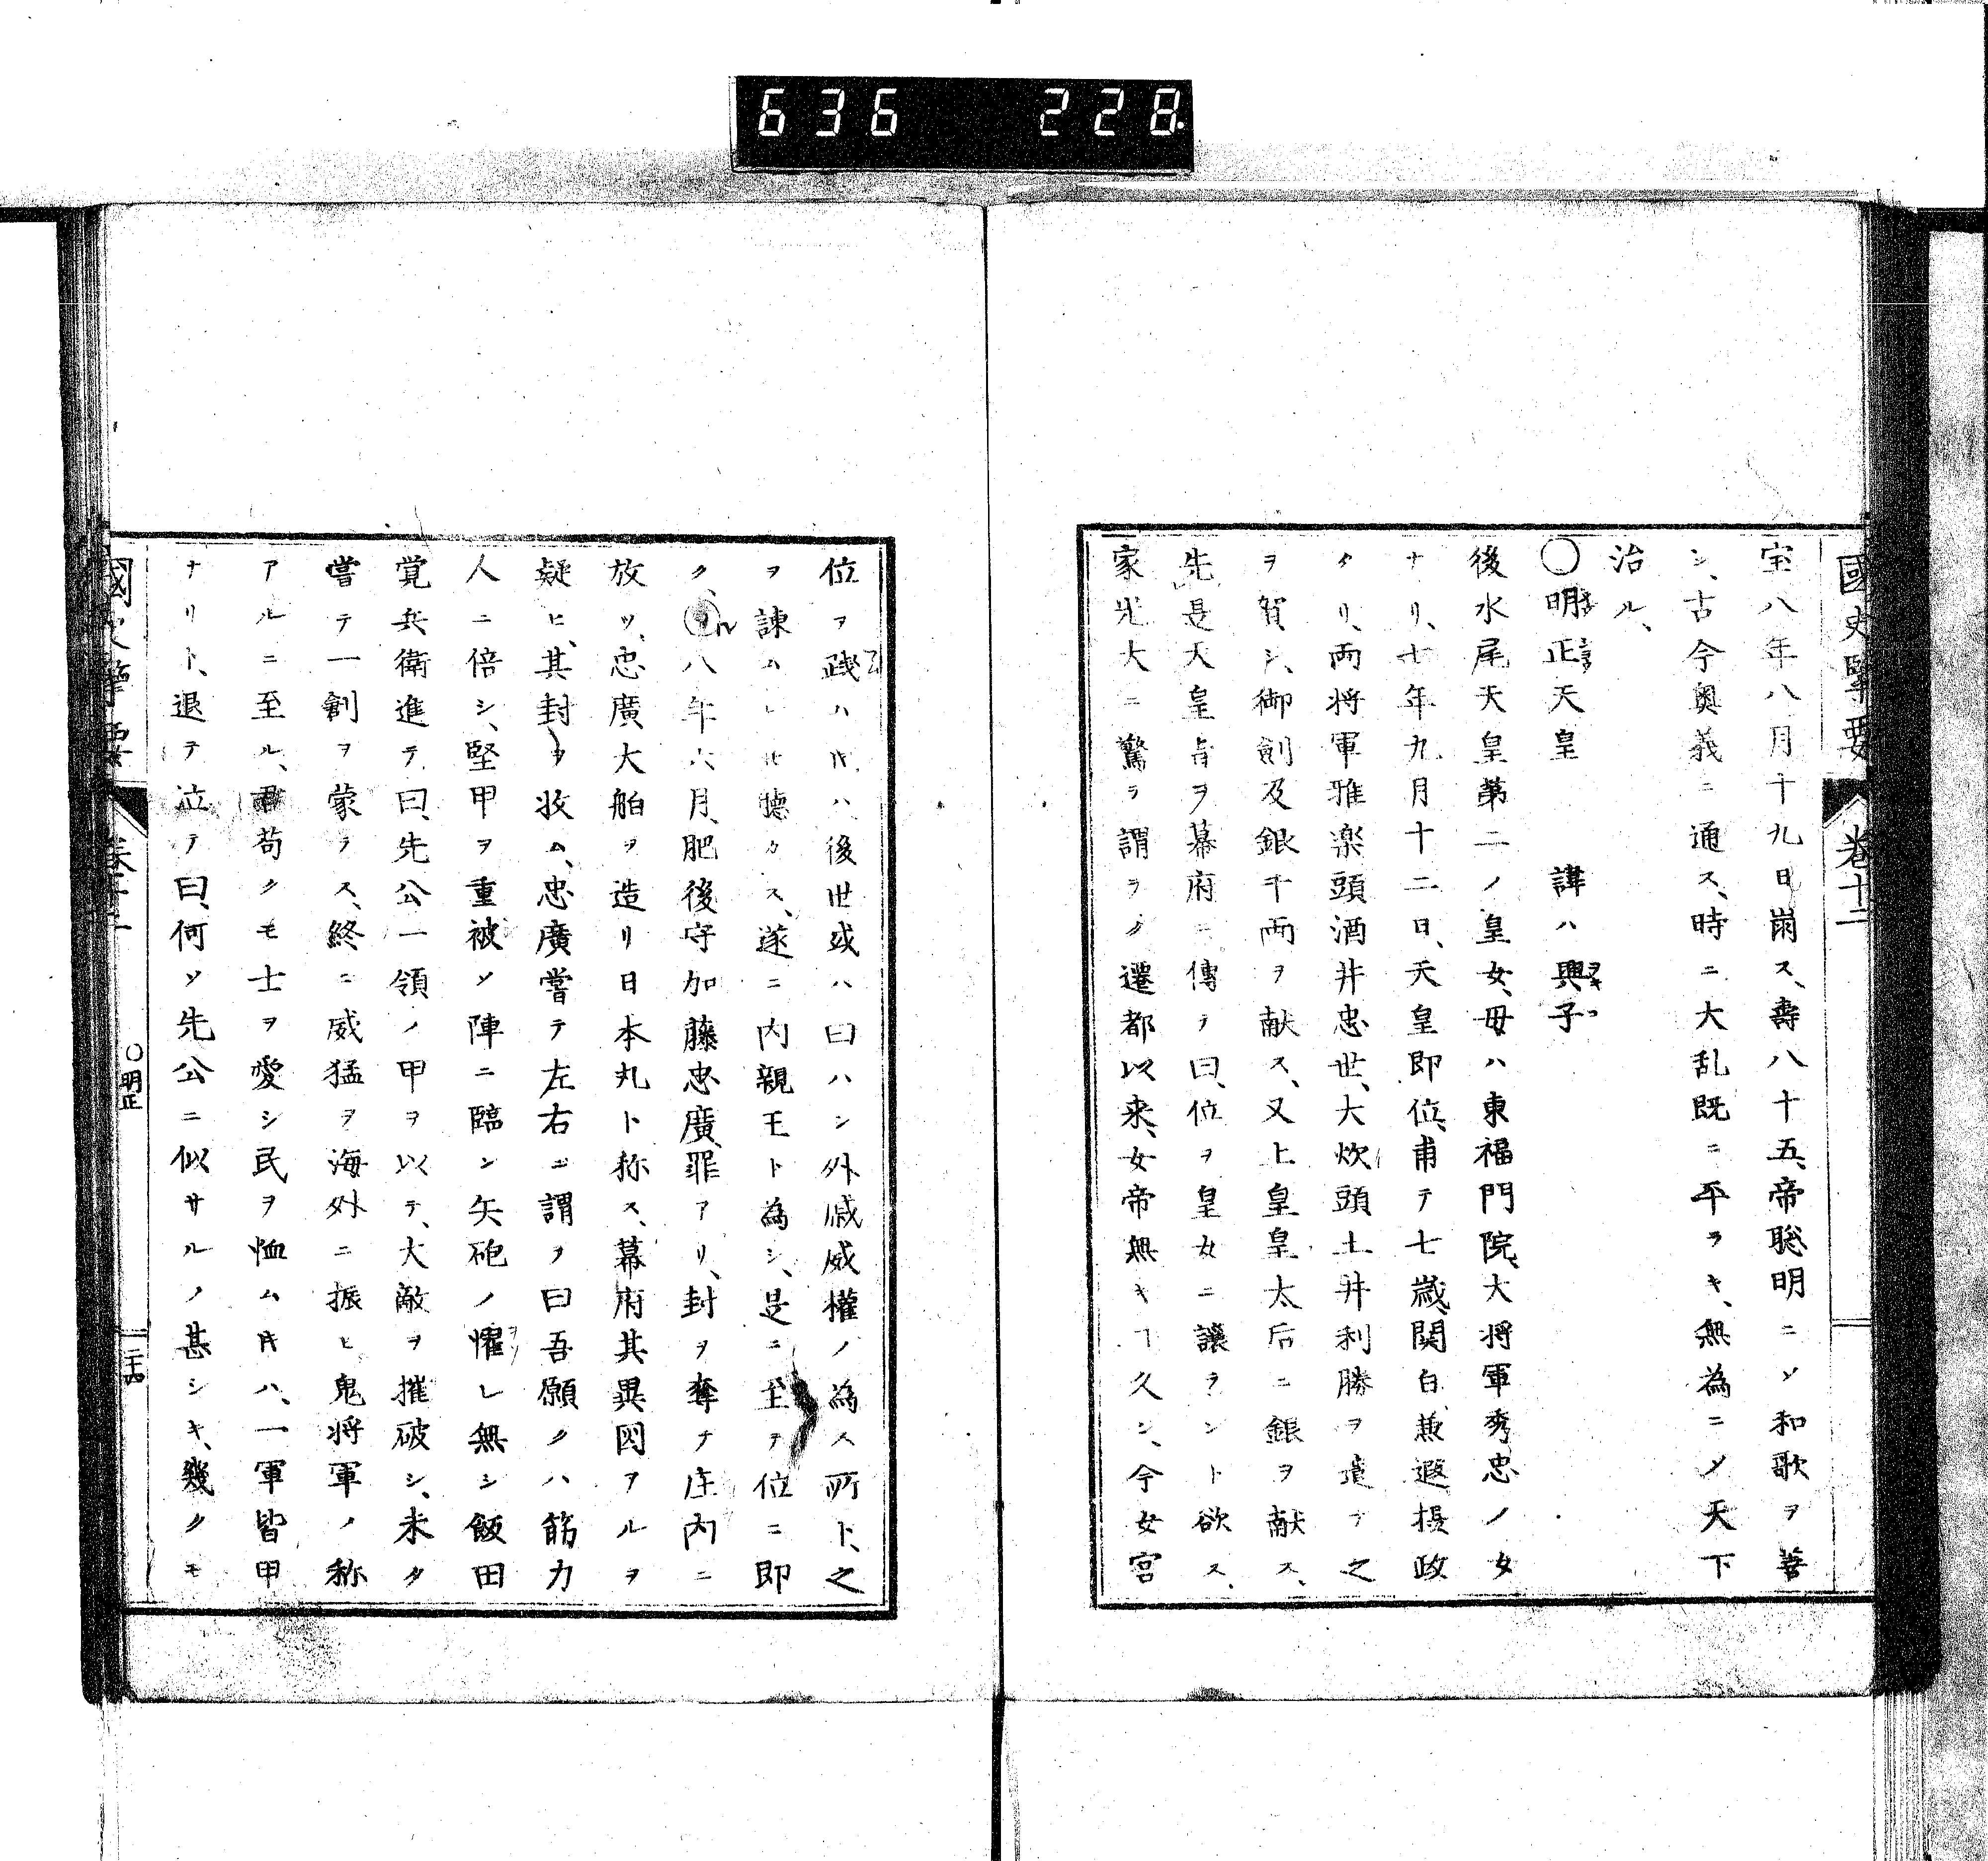 636 228
國史擥要 卷十二
宝八年八月十九日崩ス、壽八十五、帝聡明ニシテ和歌ヲ善
シ、古今奥義ニ通ス、時ニ大乱既ニ平ラキ、無為ニシテ天下
治ル、
○明正天皇 諱ハ興子
後水尾天皇第二ノ皇女、母ハ東福門院、大将軍秀忠ノ女
ナリ、七年九月十二日、天皇即位、甫テ七歳、関白兼遐摂政
タリ、両将軍雅楽頭酒井忠世、大炊頭土井利勝ヲ遣テ之
ヲ賀シ、御劍及銀千両ヲ献ス、又上皇皇太后ニ銀ヲ献ス、
先是天皇旨ヲ幕府ニ傳テ曰、位ヲ皇女ニ讓ラント欲ス、
家光大ニ驚ラ謂ラク遷都以来、女帝無キヿ久シ、今女宮
位ヲ踐ハヽ後世或ハ曰ハン外戚威權ノ為ス所ト、之
ヲ諌ムレ𪜈聴カス、遂ニ内親王ト為シ、是ニ至テ位ニ即
ク、八年六月、肥後守加藤忠廣、罪アリ、封ヲ奪テ庄内ニ
放ツ、忠廣大舶ヲ造リ日本丸ト称ス、幕府其異図アルヲ
疑ヒ、其封ヲ收ム、忠廣嘗テ左右ニ謂ヲ曰吾願クハ筋力
人ニ倍シ、堅甲ヲ重被シテ陣ニ臨ン矢砲ノ懼レ無シ飯田
覚兵衛進テ曰、先公一領ノ甲ヲ以テ、大敵ヲ摧破シ、未タ
嘗テ一創ヲ蒙ラス、終ニ威猛ヲ海外ニ振ヒ鬼将軍ノ称
アルニ至ル、君苟クモ士ヲ愛シ民ヲ恤ムキハ、一軍皆甲
ナリト、退テ泣テ曰、何ソ先公ニ似サルノ甚シキ、幾クモ
國史擥要 卷十二 ○明正 二十四